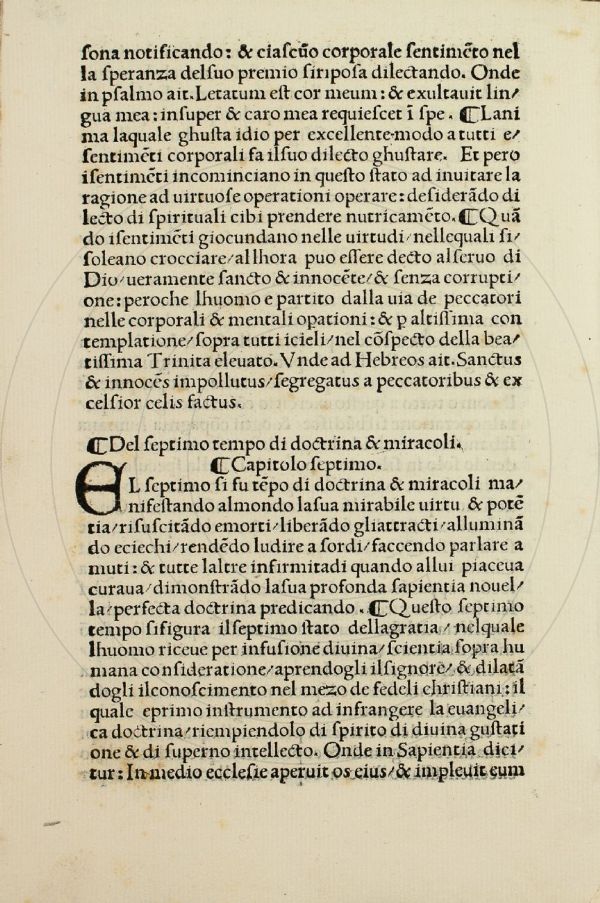 ſona notificando: & ciaſcũo corporale ſentimẽto nel
la ſperanza delſuo premio ſiripoſa dilectando. Onde
in pſalmo ait. Letatum eſt cor meum: & exultauit lin⸗
gua mea: inſuper & caro mea requieſcet ĩ ſpe. ¶Lani
ma laquale ghuſta idio per excellente modo a tutti e⸗
ſentimẽti corporali fa ilſuo dilecto ghuſtare. Et pero
iſentimẽti incominciano in queſto ſtato ad inuitare la
ragione ad uirtuoſe operationi operare: deſiderãdo di
lecto di ſpirituali cibi prendere nutricamẽto. ¶Quã
do iſentimẽti giocundano nelle uirtudi/ nellequali ſi⸗
ſoleano crocciare/ allhora puo eſſere decto alſeruo di
Dio/ ueramente ſancto & innocẽte/ & ſenza corrupti⸗
one: peroche lhuomo e partito dalla uia de peccatori
nelle corporali & mentali opationi: & p altiſſima con
templatione/ ſopra tutti icieli/ nel cõſpecto della bea⸗
tiſſima Trinita eleuato. Vnde ad Hebreos ait. Sanctus
& innocẽs impollutus/ ſegregatus a peccatoribus & ex
celſior celis factus.
¶Del ſeptimo tempo di doctrina & miracoli.
¶Capitolo ſeptimo.
EL ſeptimo ſi fu tẽpo di doctrina & miracoli ma⸗
nifeſtando almondo laſua mirabile uirtu & potẽ
tia/ riſuſcitãdo emorti/ liberãdo gliattracti/ alluminã
do eciechi/ rendẽdo ludire a ſordi/ faccendo parlare a
muti: & tutte laltre infirmitadi quando allui piaceua
curaua/ dimonſtrãdo laſua profonda ſapientia nouel⸗
la/ perfecta doctrina predicando. ¶Queſto ſeptimo
tempo ſifigura ilſeptimo ſtato dellagratia/ nelquale
lhuomo riceue per infuſione diuina/ ſcientia ſopra hu
mana conſideratione/ aprendogli ilſignore/ & dilatã
dogli ilconoſcimento nel mezo de fedeli chriſtiani: il
quale eprimo inſtrumento ad infrangere la euangeli⸗
ca doctrina/ riempiendolo di ſpirito di diuina guſtati
one & di ſuperno intellecto. Onde in Sapientia dici⸗
tur: In medio eccleſie aperuit os eius/ & impleuit eum